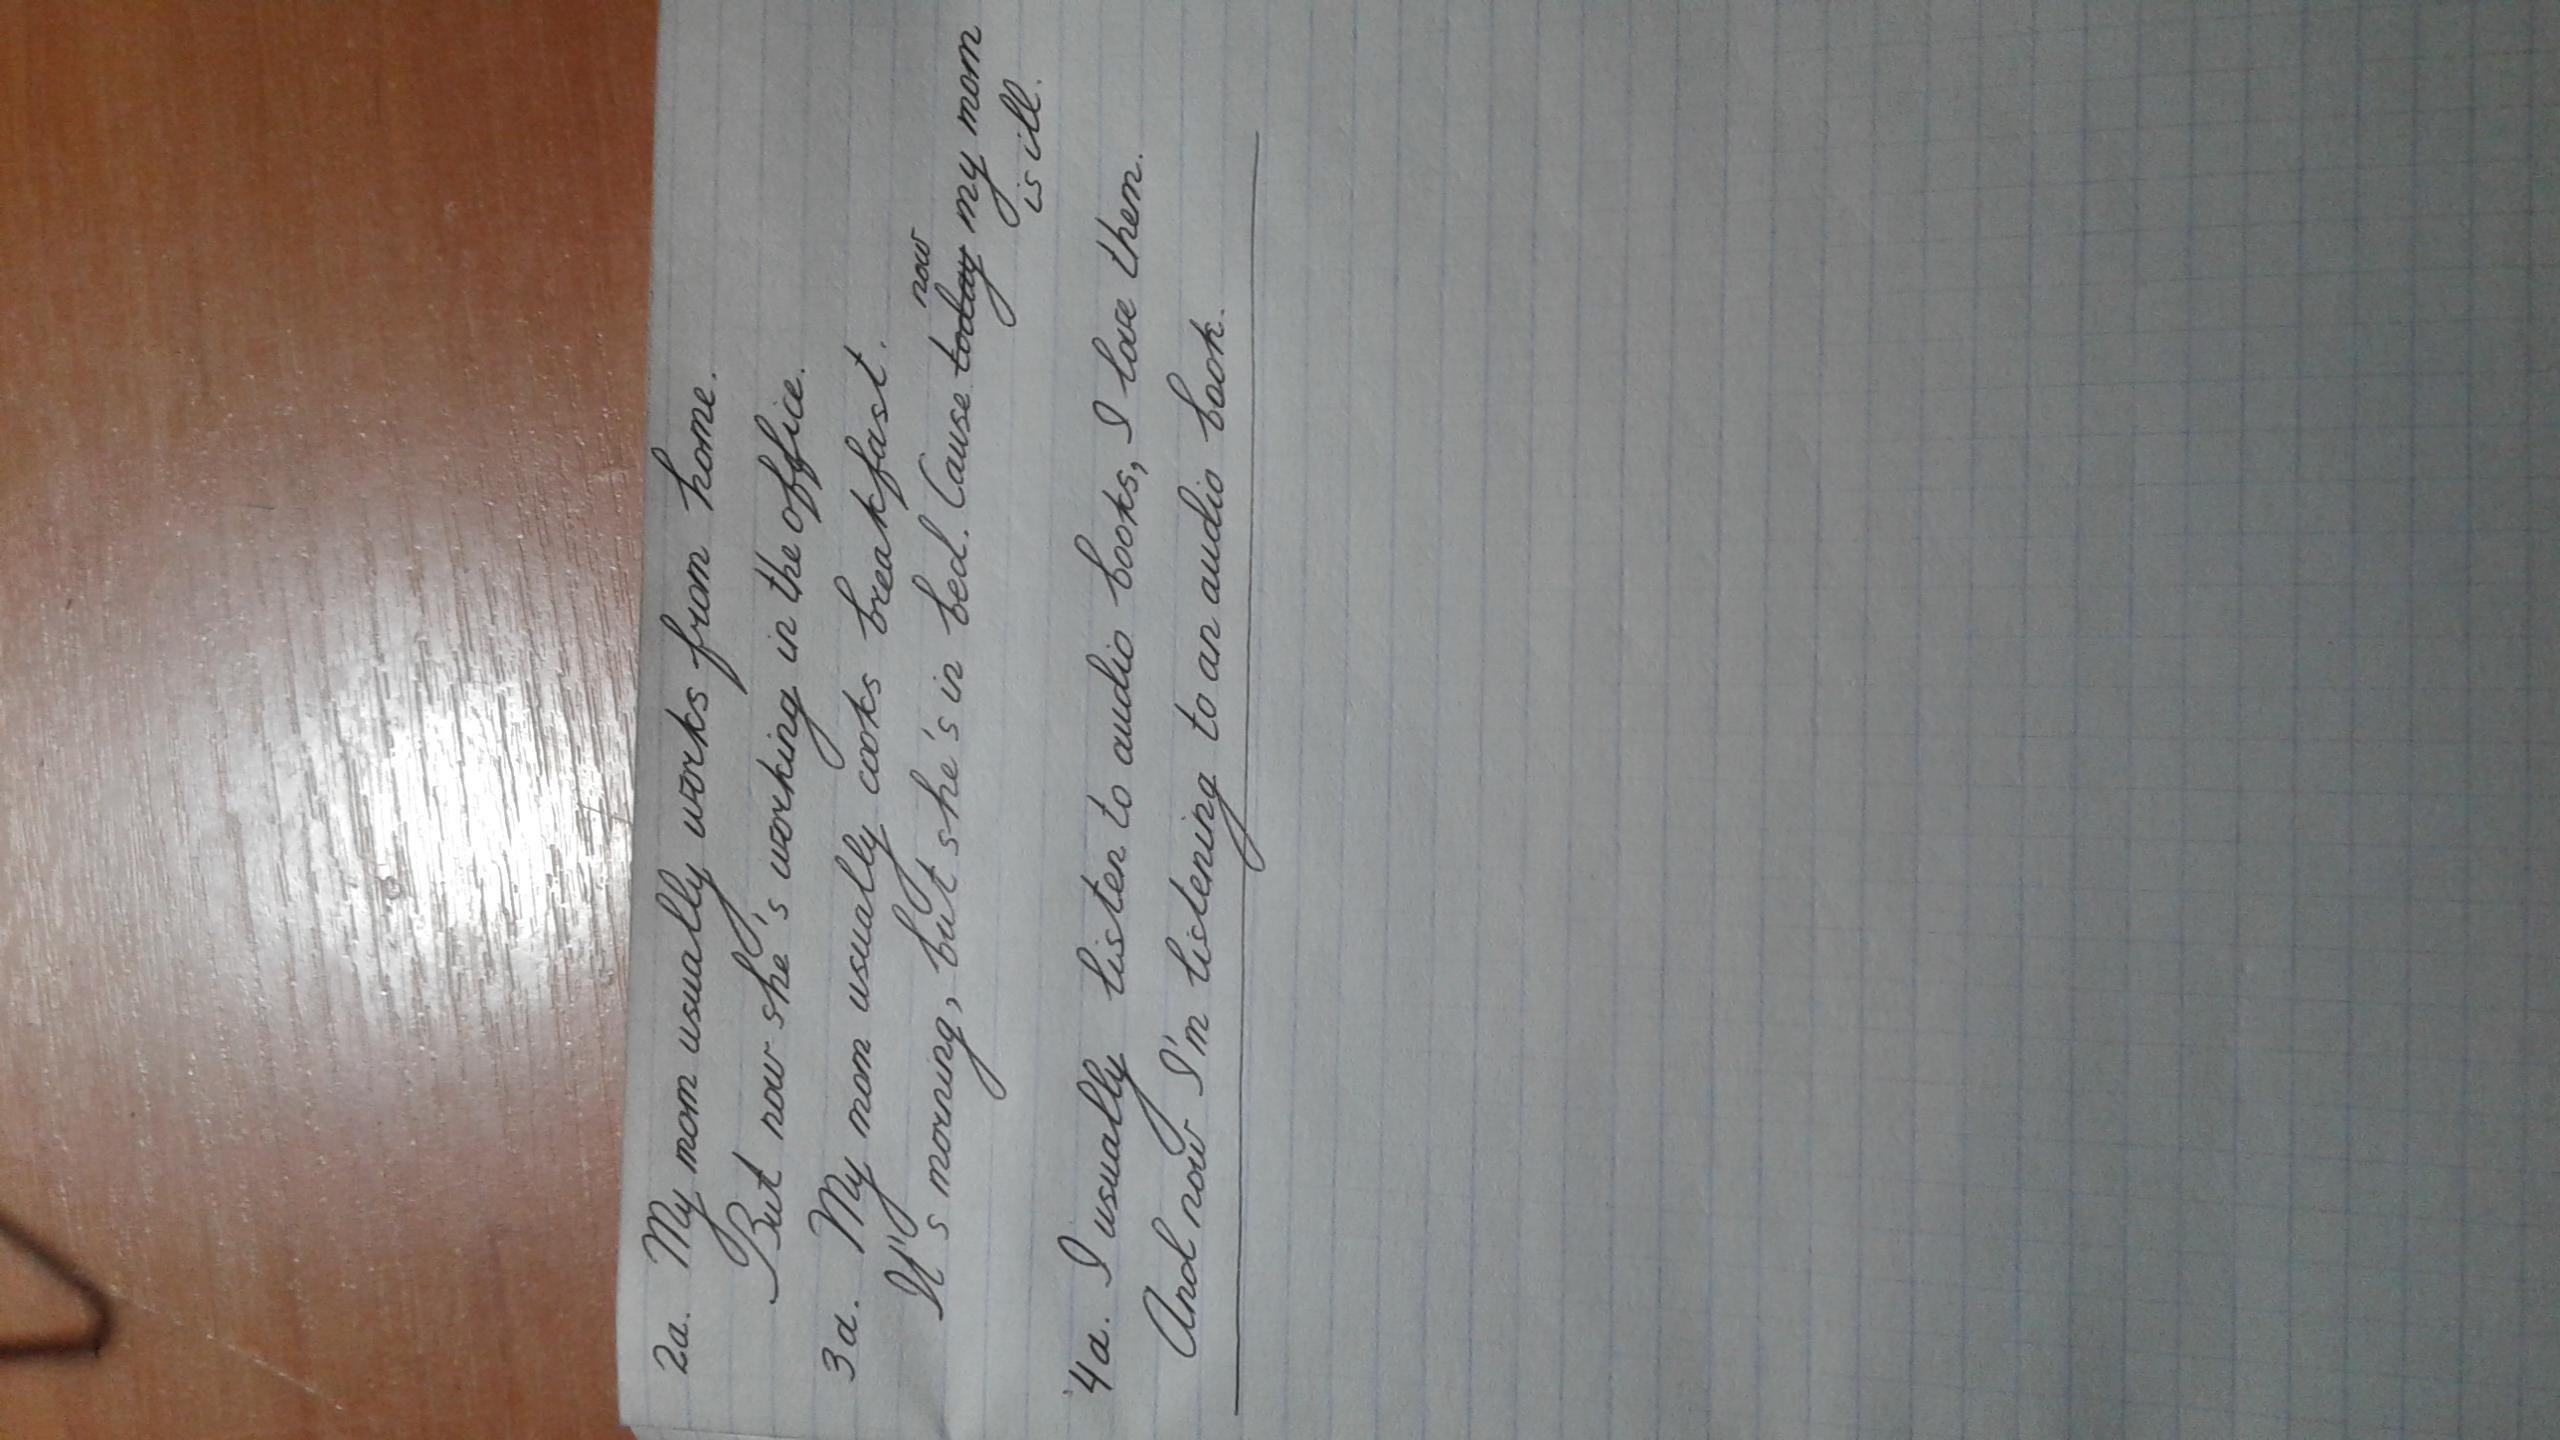 2a. My mom usually works from home.
But now she's working in the office.
3a. My mom usually cooks breakfast.
It's morning, but she's in bed. Cause today now my mom
is ill.
4a. I usually listen to audio books, I love them.
And now I'm listening to an audio book.